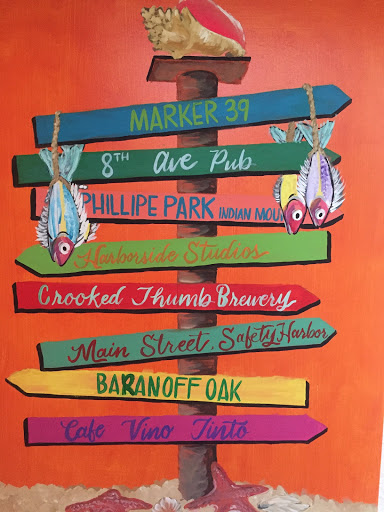 MARKER 39
8TH Ave Pub
PHILLIPE PARK INDIAN MOU
Harborside Studios
Crooked Thumb Brewery
Main Street, Safety Harbor
BARANOFF OAK
Cafe Vino Tinto